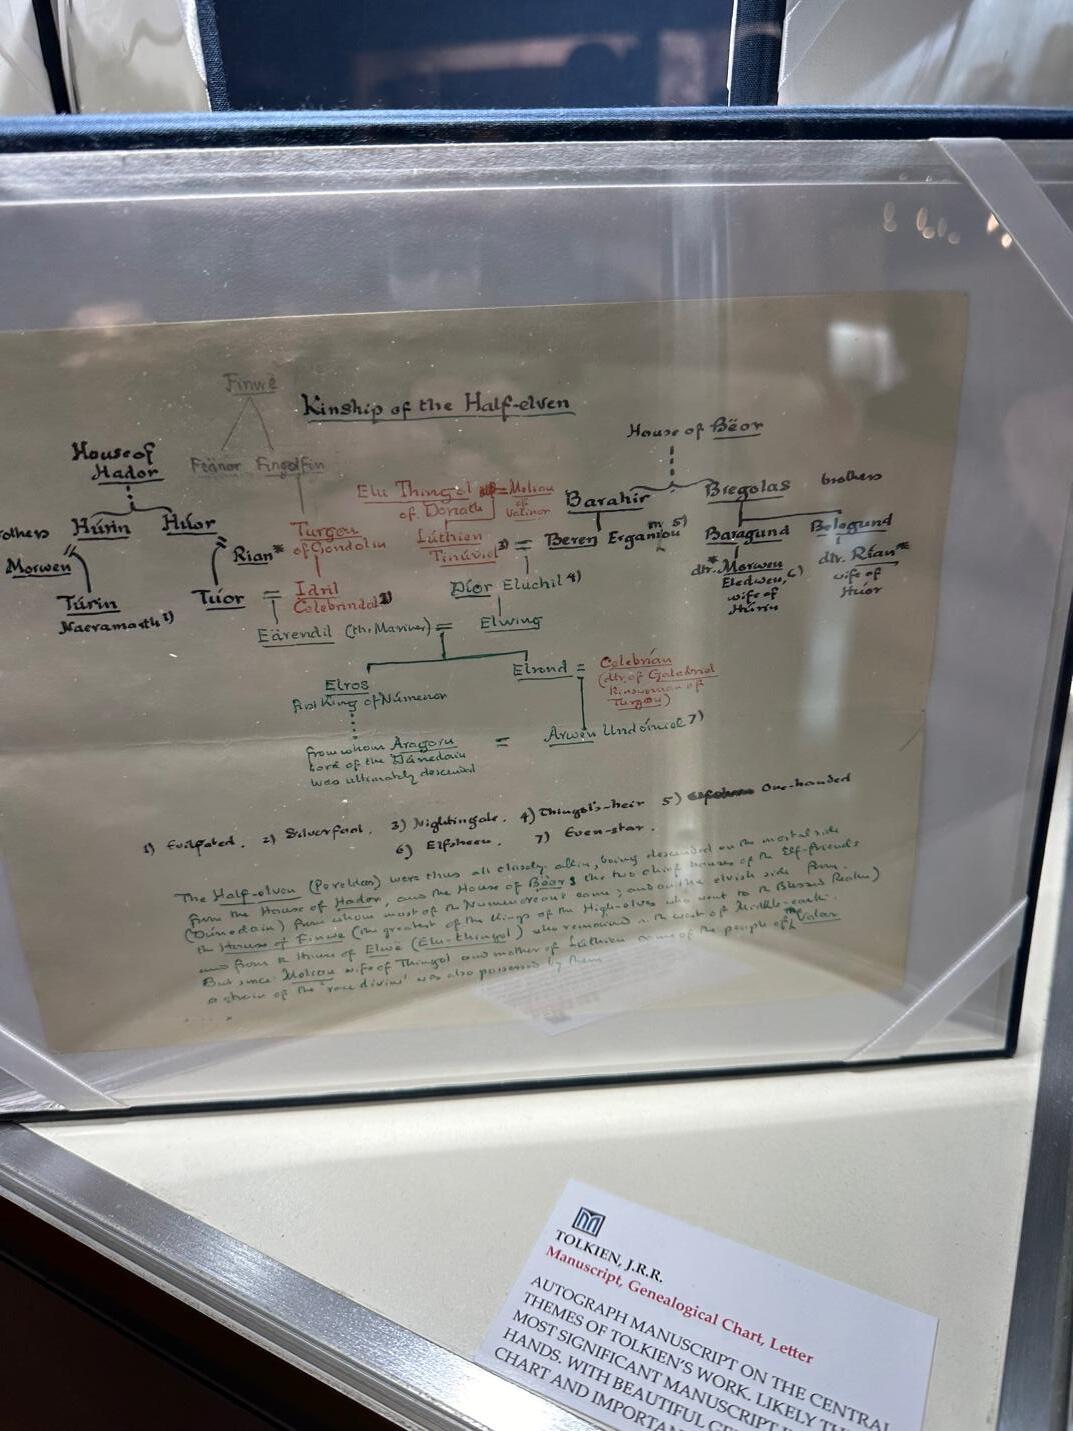 Finwë
Kinship of the Half-elven
House of Bëor
House of
Hador
Fëanor Fingolfin
Elu Thingol = Melian
of Doriath of Valinor
Barahir Bregolas brothers
Húrin Huor
Turgon
of Gondolin
Lúthien
Tinúviel 3) = Beren Ergamion 5)
Baragund Belegund
Morwen Rían*
dtr.* Morwen
Eledwen, 6)
wife of
Húrin
dtr. Rían**
wife of
Huor
Túrin
Naeramarth 1)
Tuor = Idril
Celebrindal 2)
Dior Eluchil 4)
Eärendil (the Mariner) = Elwing
Elros
first King of Númenor
Elrond = Celebrían
(dtr. of Galadriel
kinswoman of
Turgon)
from whom Aragorn
Lord of the Dúnedain
was ultimately descended
= Arwen Undómiel 7)
1) Evilfated. 2) Silverfoot. 3) Nightingale. 4) Thingol's-heir 5) One-handed
6) Elfsheen. 7) Even-star.
The Half-elven (Pereldar) were thus all closely akin, being descended on the mortal side
from the House of Hador, and the House of Bëor, the two chief houses of the Elf-friends
(Dúnedain) from whom most of the Númenóreans came; and on the elvish side from
the House of Finwë (the greatest of the kings of the High-elves who went to the Blessed Realm)
and from the House of Elwë (Elu-thingol) who remained in the west of Middle-earth.
But since Melian wife of Thingol and mother of Lúthien came of the people of the Valar
a strain of the 'race divine' was also possessed by them
TOLKIEN, J.R.R.
Manuscript, Genealogical Chart, Letter
AUTOGRAPH MANUSCRIPT ON THE CENTRAL
THEMES OF TOLKIEN'S WORK. LIKELY TH
MOST SIGNIFICANT MANUSCRIPT
HANDS. WITH BEAUTIFUL GE
CHART AND IMPORTAN